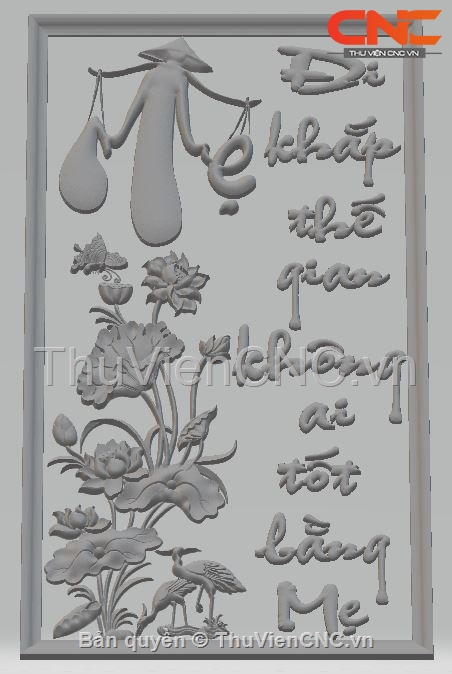 CNC
THƯ VIỆN CNC.VN
Mẹ
Đi
khắp
thế
gian
không
ai
tốt
bằng
Mẹ
ThuVienCNC.vn
Bản quyền © ThuVienCNC.vn